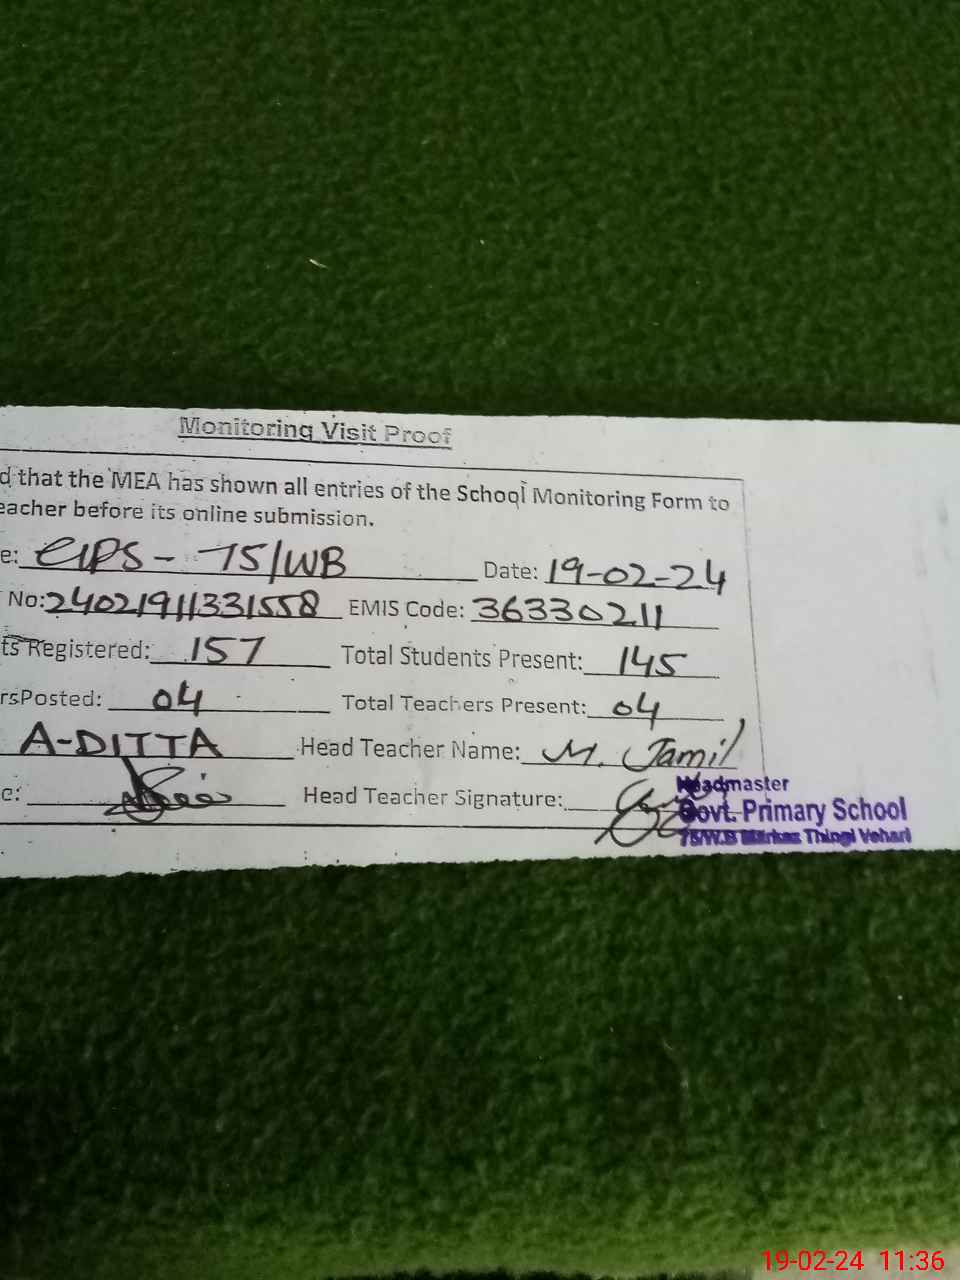 Monitoring Visit Proof
d that the MEA has shown all entries of the School Monitoring Form to
eacher before its online submission.
e: GPS- 75/WB Date: 19-02-24
No: 24021911331558 EMIS Code: 36330211
ts Registered: 157 Total Students Present: 145
rsPosted: 04 Total Teachers Present: 04
A-DITTA Head Teacher Name: M. Jamil
e: Head Teacher Signature:
Headmaster
Govt. Primary School
75/W.B Markaz Thingi Vehari
19-02-24 11:36